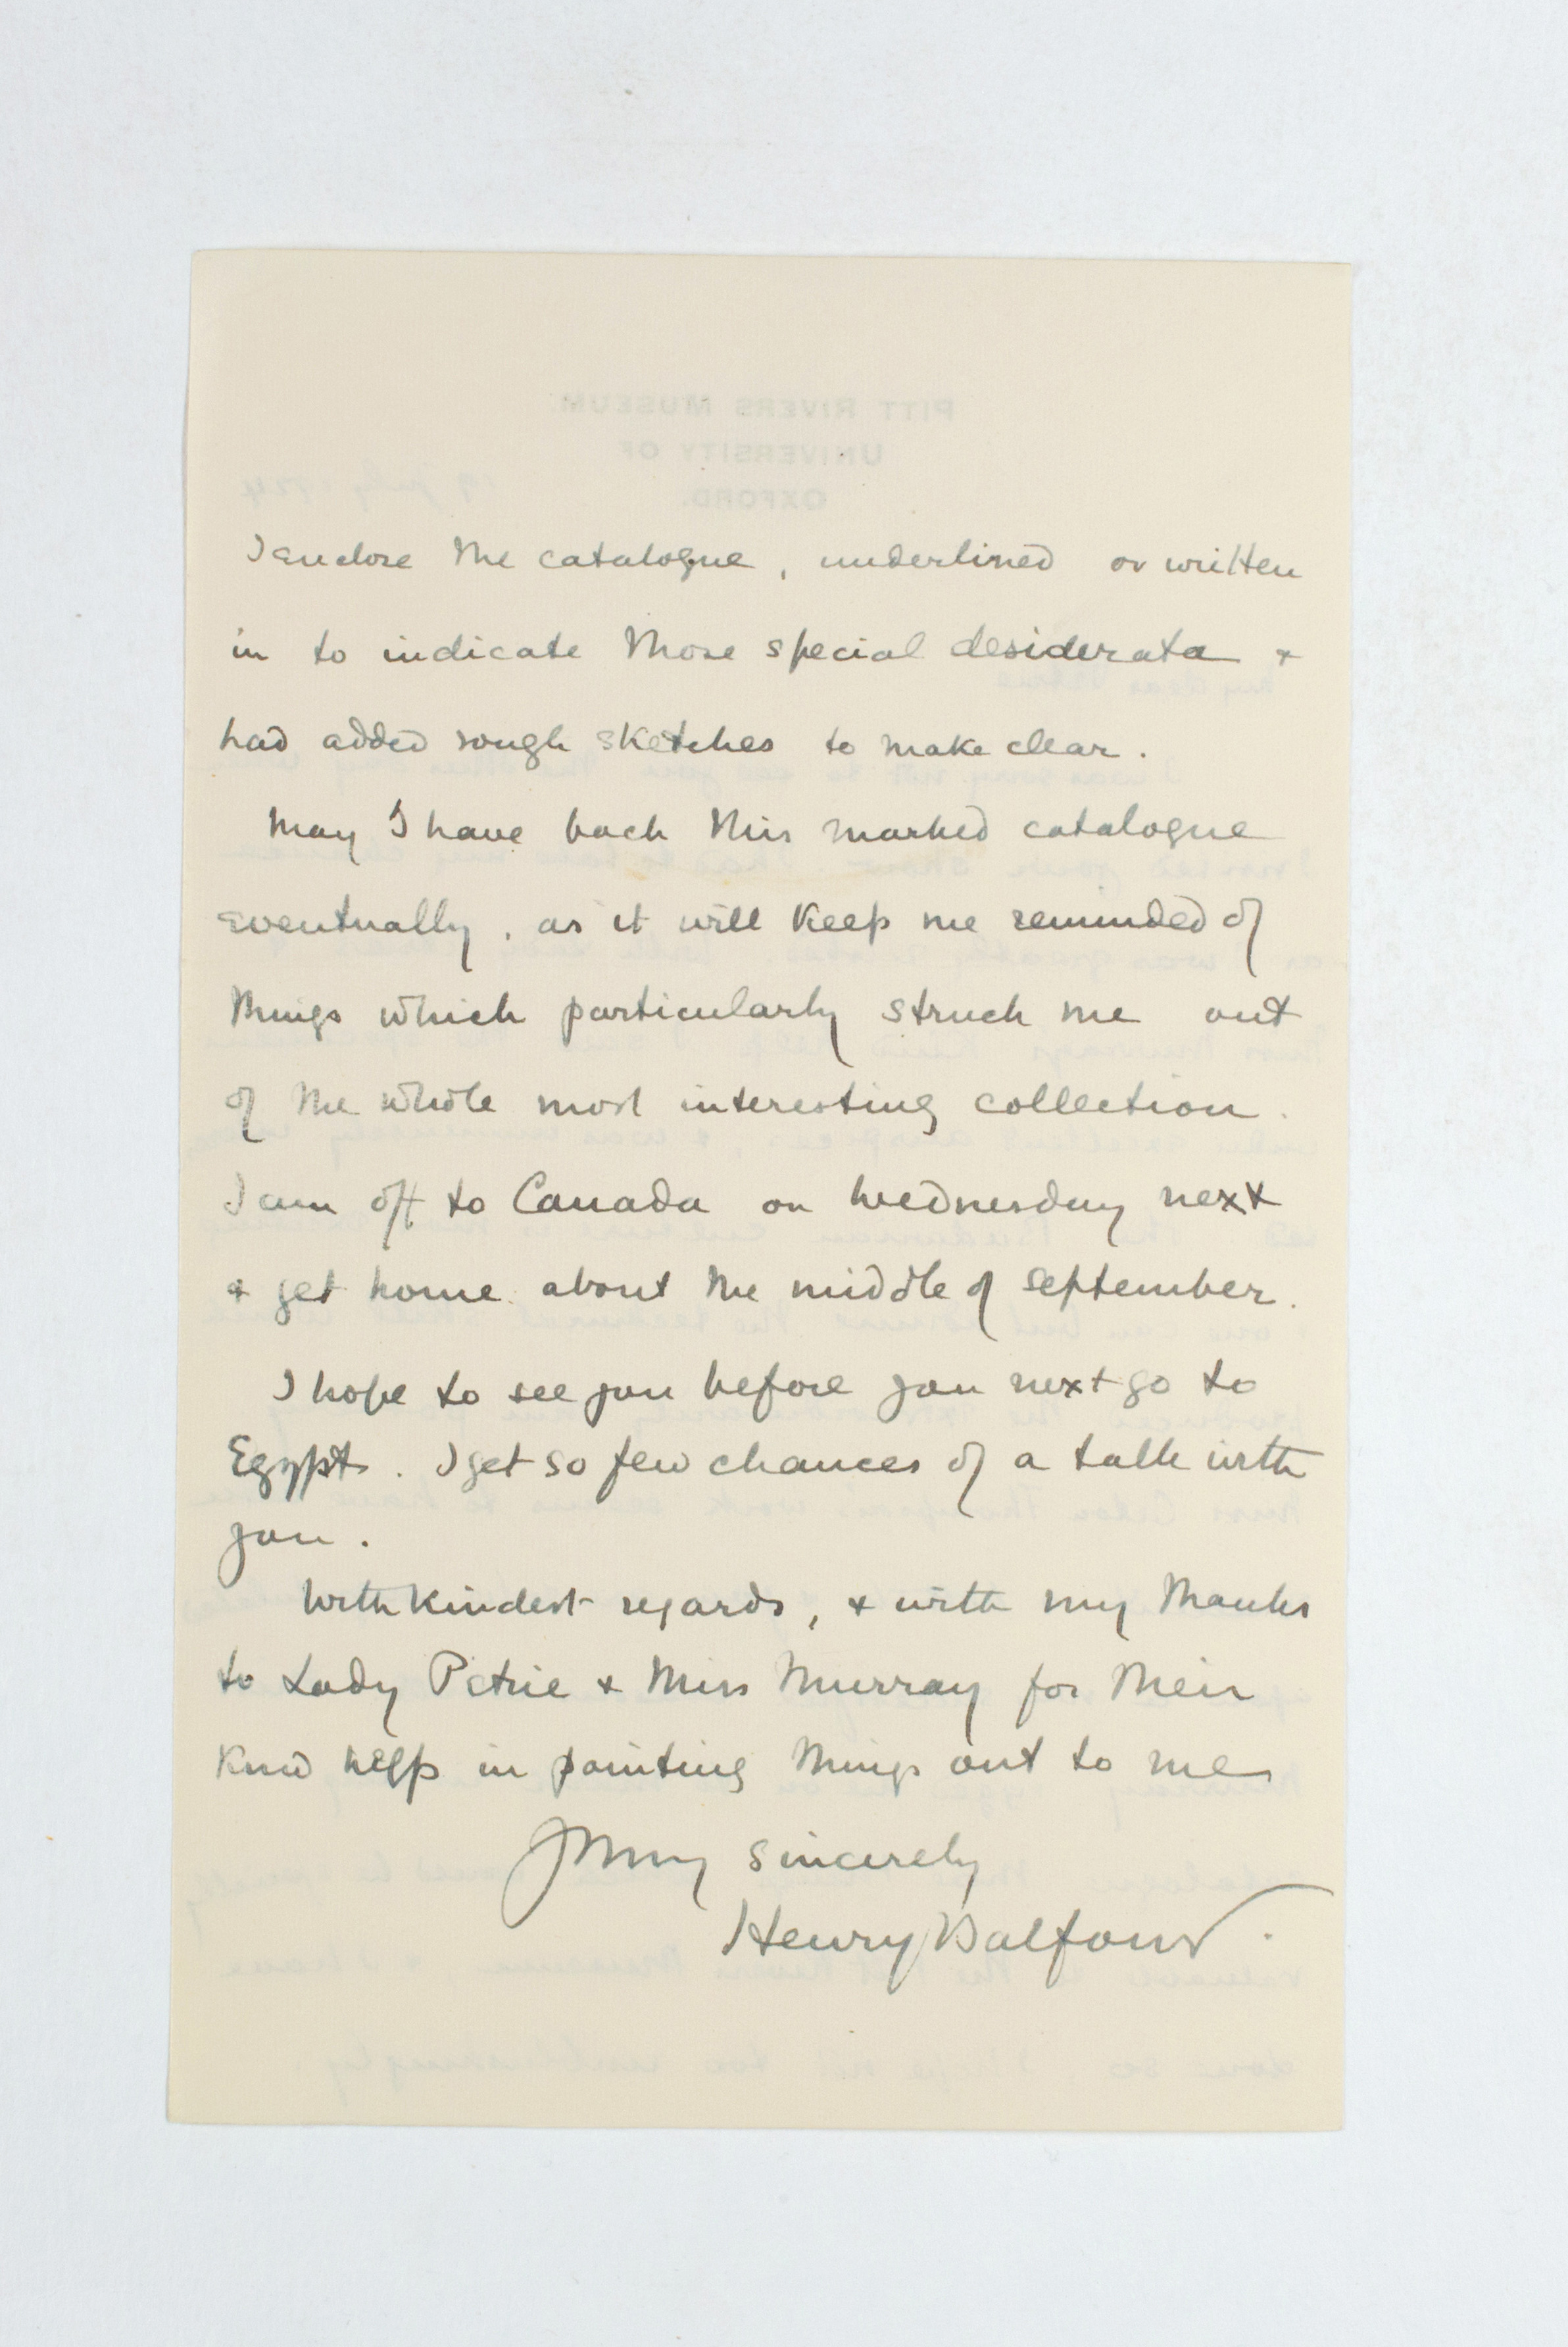 I enclose the catalogue, underlined or written
in to indicate those special desiderata &
had added rough sketches to make clear.
May I have back this marked catalogue
eventually, as it will keep me reminded of
things which particularly struck me out
of the whole most interesting collection.
I am off to Canada on Wednesday next
& get home about the middle of September.
I hope to see you before you next go to
Egypt. I get so few chances of a talk with
you.
With kindest regards, & with my thanks
to Lady Petrie & Miss Murray for their
kind help in pointing things out to me
Yours sincerely
Henry Balfour.
PITT RIVERS MUSEUM
UNIVERSITY OF
OXFORD.